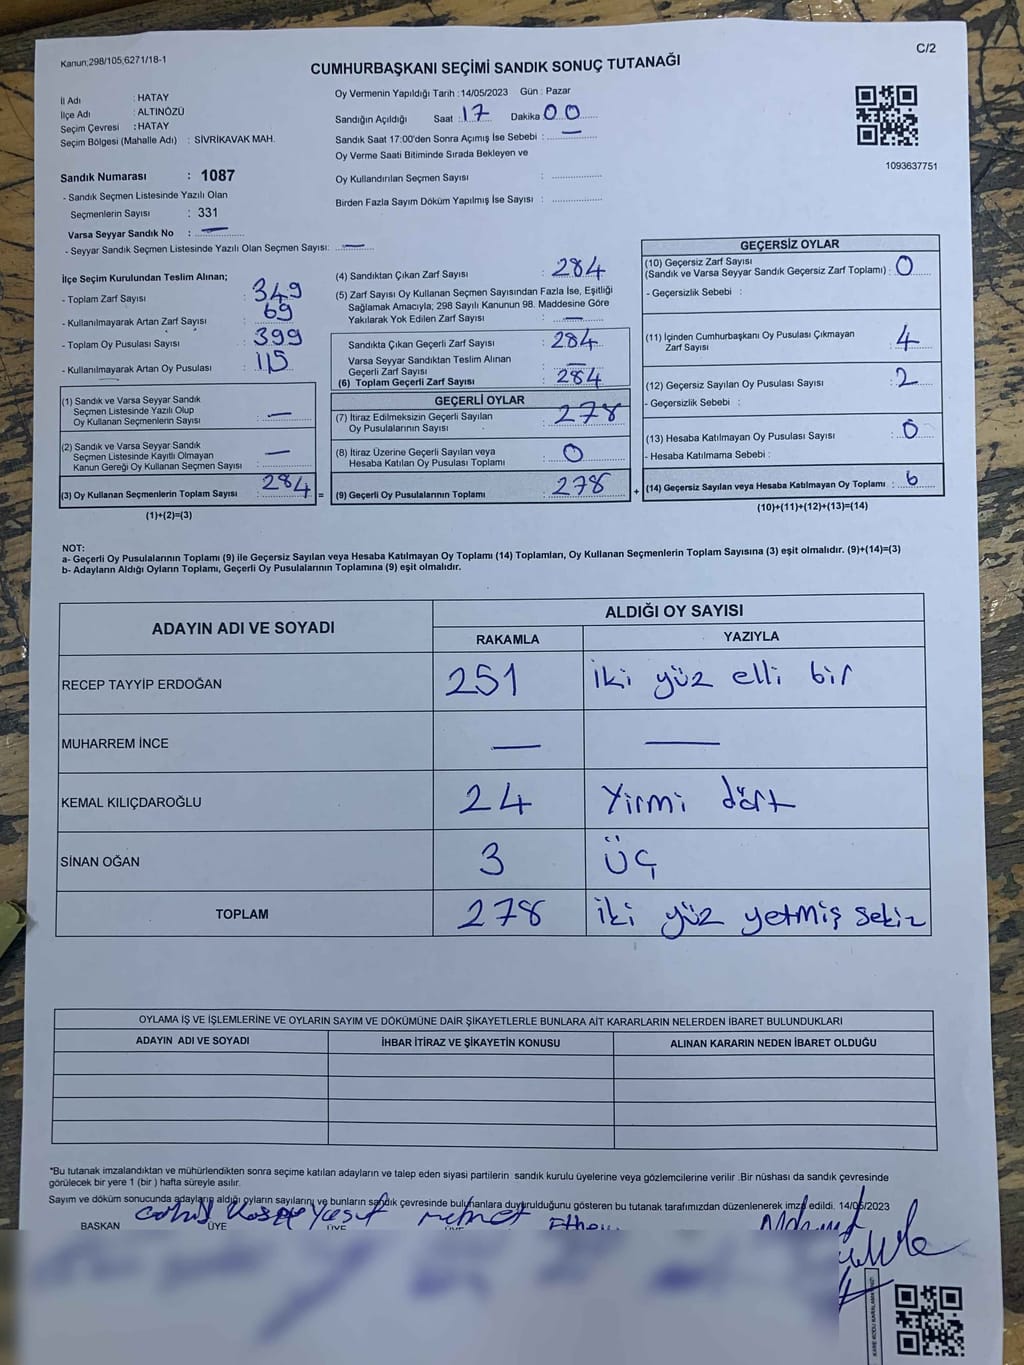 Kanun;298/105;6271/18-1
C/2
CUMHURBAŞKANI SEÇİMİ SANDIK SONUÇ TUTANAĞI
İl Adı : HATAY
İlçe Adı : ALTINÖZÜ
Seçim Çevresi : HATAY
Seçim Bölgesi (Mahalle Adı) : SİVRİKAVAK MAH.
Oy Vermenin Yapıldığı Tarih : 14/05/2023 Gün : Pazar
Sandığın Açıldığı Saat : 17 Dakika 00
Sandık Saat 17:00'den Sonra Açımış İse Sebebi : —
Oy Verme Saati Bitiminde Sırada Bekleyen ve
Oy Kullandırılan Seçmen Sayısı :
Birden Fazla Sayım Döküm Yapılmış İse Sayısı :
1093637751
Sandık Numarası : 1087
- Sandık Seçmen Listesinde Yazılı Olan
Seçmenlerin Sayısı : 331
Varsa Seyyar Sandık No : —
- Seyyar Sandık Seçmen Listesinde Yazılı Olan Seçmen Sayısı: —
İlçe Seçim Kurulundan Teslim Alınan;
- Toplam Zarf Sayısı : 349
- Kullanılmayarak Artan Zarf Sayısı : 69
- Toplam Oy Pusulası Sayısı : 399
- Kullanılmayarak Artan Oy Pusulası : 115
(1) Sandık ve Varsa Seyyar Sandık
Seçmen Listesinde Yazılı Olup
Oy Kullanan Seçmenlerin Sayısı : —
(2) Sandık ve Varsa Seyyar Sandık
Seçmen Listesinde Kayıtlı Olmayan
Kanun Gereği Oy Kullanan Seçmen Sayısı : —
(3) Oy Kullanan Seçmenlerin Toplam Sayısı : 284 =
(1)+(2)=(3)
(4) Sandıktan Çıkan Zarf Sayısı : 284
(5) Zarf Sayısı Oy Kullanan Seçmen Sayısından Fazla İse, Eşitliği
Sağlamak Amacıyla; 298 Sayılı Kanunun 98. Maddesine Göre
Yakılarak Yok Edilen Zarf Sayısı : —
Sandıkta Çıkan Geçerli Zarf Sayısı : 284
Varsa Seyyar Sandıktan Teslim Alınan
Geçerli Zarf Sayısı : —
(6) Toplam Geçerli Zarf Sayısı : 284
GEÇERLİ OYLAR
(7) İtiraz Edilmeksizin Geçerli Sayılan
Oy Pusulalarının Sayısı : 278
(8) İtiraz Üzerine Geçerli Sayılan veya
Hesaba Katılan Oy Pusulası Toplamı : 0
(9) Geçerli Oy Pusulalarının Toplamı : 278 +
GEÇERSİZ OYLAR
(10) Geçersiz Zarf Sayısı
(Sandık ve Varsa Seyyar Sandık Geçersiz Zarf Toplamı) : 0
- Geçersizlik Sebebi :
(11) İçinden Cumhurbaşkanı Oy Pusulası Çıkmayan
Zarf Sayısı : 4
(12) Geçersiz Sayılan Oy Pusulası Sayısı : 2
- Geçersizlik Sebebi :
(13) Hesaba Katılmayan Oy Pusulası Sayısı : 0
- Hesaba Katılmama Sebebi :
(14) Geçersiz Sayılan veya Hesaba Katılmayan Oy Toplamı : 6
(10)+(11)+(12)+(13)=(14)
NOT:
a- Geçerli Oy Pusulalarının Toplamı (9) ile Geçersiz Sayılan veya Hesaba Katılmayan Oy Toplamı (14) Toplamları, Oy Kullanan Seçmenlerin Toplam Sayısına (3) eşit olmalıdır. (9)+(14)=(3)
b- Adayların Aldığı Oyların Toplamı, Geçerli Oy Pusulalarının Toplamına (9) eşit olmalıdır.
ADAYIN ADI VE SOYADI ALDIĞI OY SAYISI
RAKAMLA YAZIYLA
RECEP TAYYİP ERDOĞAN 251 iki yüz elli bir
MUHARREM İNCE — —
KEMAL KILIÇDAROĞLU 24 Yirmi dört
SİNAN OĞAN 3 ÜÇ
TOPLAM 278 iki yüz yetmiş sekiz
OYLAMA İŞ VE İŞLEMLERİNE VE OYLARIN SAYIM VE DÖKÜMÜNE DAİR ŞİKAYETLERLE BUNLARA AİT KARARLARIN NELERDEN İBARET BULUNDUKLARI
ADAYIN ADI VE SOYADI İHBAR İTİRAZ VE ŞİKAYETİN KONUSU ALINAN KARARIN NEDEN İBARET OLDUĞU
*Bu tutanak imzalandıktan ve mühürlendikten sonra seçime katılan adayların ve talep eden siyasi partilerin sandık kurulu üyelerine veya gözlemcilerine verilir. Bir nüshası da sandık çevresinde
görülecek bir yere 1 (bir ) hafta süreyle asılır.
Sayım ve döküm sonucunda adayların aldığı oyların sayılarını ve bunların sandık çevresinde bulunanlara duyurulduğunu gösteren bu tutanak tarafımızdan düzenlenerek imza edildi. 14/05/2023
Yusuf Mehmet
BAŞKAN ÜYE ÜYE